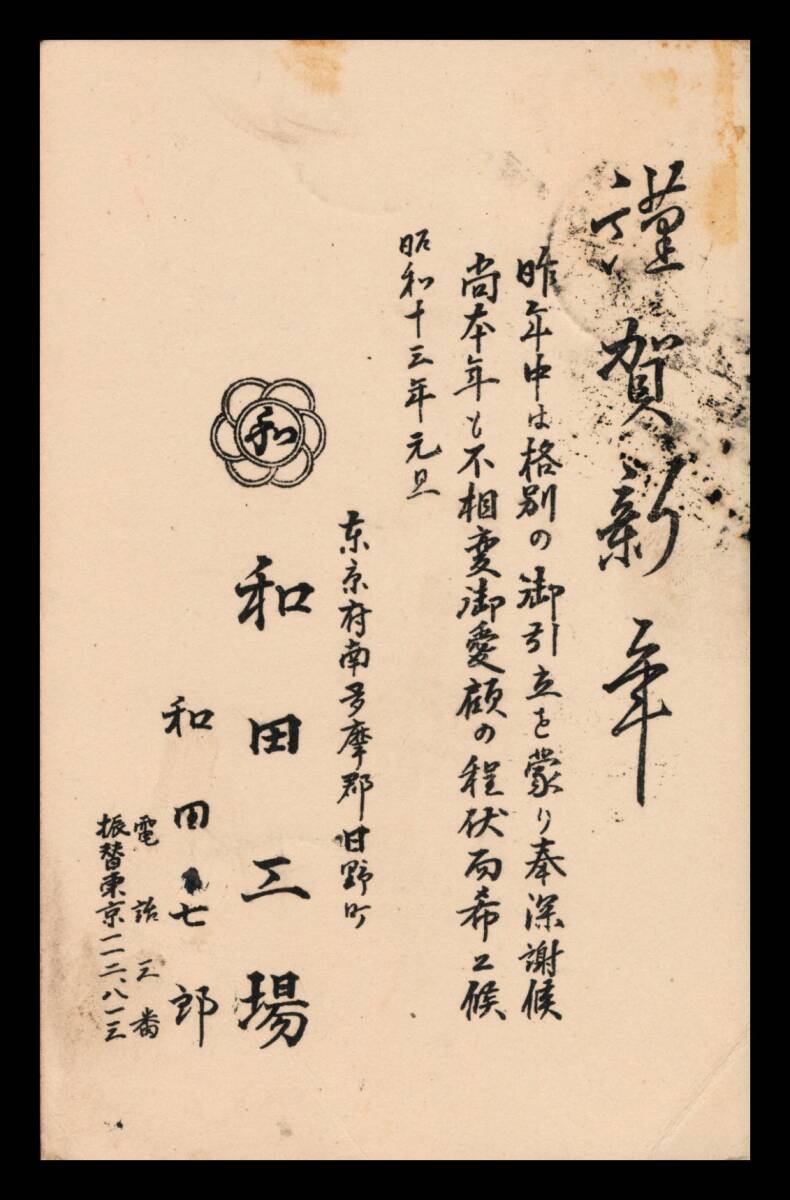 謹賀新年
昨年中は格別の御引立を蒙り奉深謝候
尚本年も不相変御愛顧の程伏而希上候
昭和十三年元旦
東京府南多摩郡日野町
和
和田工場
和田七郎
電話三番
振替東京一一二、八一三